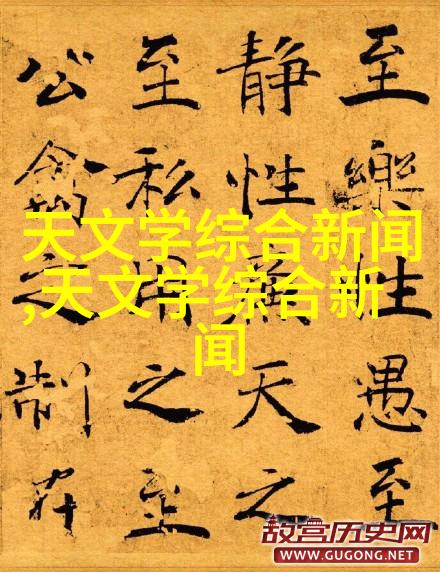 至樂性愚至
静性天之
至私之至
公禽之制在
天文学综合新闻
,天文学综合新
闻
故宫历史网
WWW.GUGONG.NET